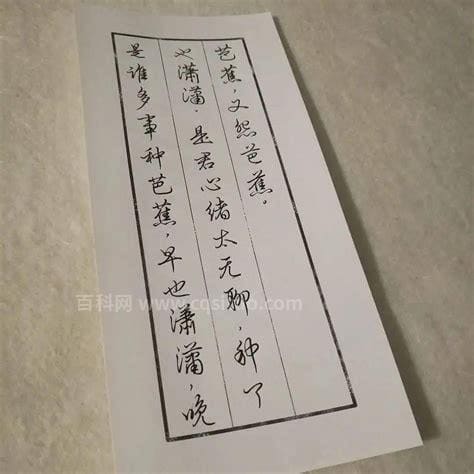 是谁多事种芭蕉，早也潇潇，晚
也潇潇。是君心绪太无聊，种了
芭蕉，又怨芭蕉。
百科网